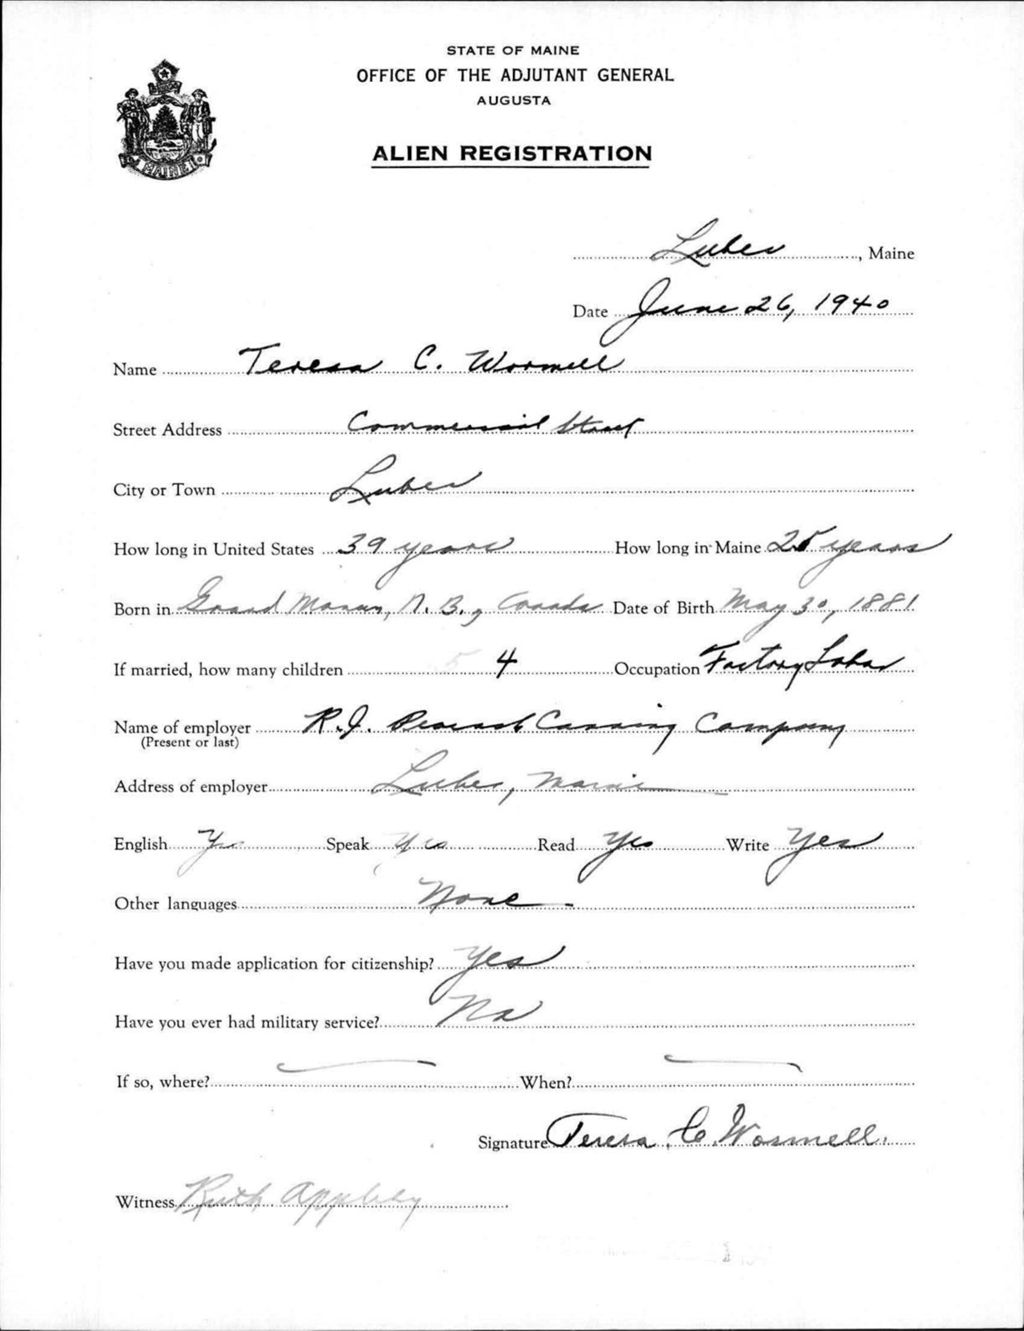 STATE OF MAINE
OFFICE OF THE ADJUTANT GENERAL
AUGUSTA
MAINE
ALIEN REGISTRATION
Lubec, Maine
Date June 26, 1940
Name Teresa C. Wormell
Street Address Commercial Street
City or Town Lubec
How long in United States 39 years How long in Maine 25 years
Born in Grand Manan, N. B., Canada Date of Birth May 30, 1881
If married, how many children 4 Occupation Factory Labor
Name of employer R. J. Peacock Canning Company
(Present or last)
Address of employer Lubec, Maine
English Yes Speak Yes Read Yes Write Yes
Other languages None
Have you made application for citizenship? Yes
Have you ever had military service? No
If so, where? When?
Signature Teresa C. Wormell.
Witness Ruth Appleby